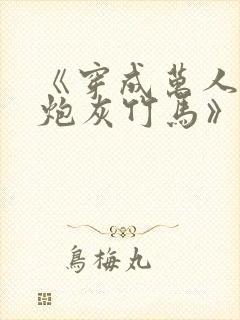 《穿成萬人
炮灰竹馬》
鳥梅丸